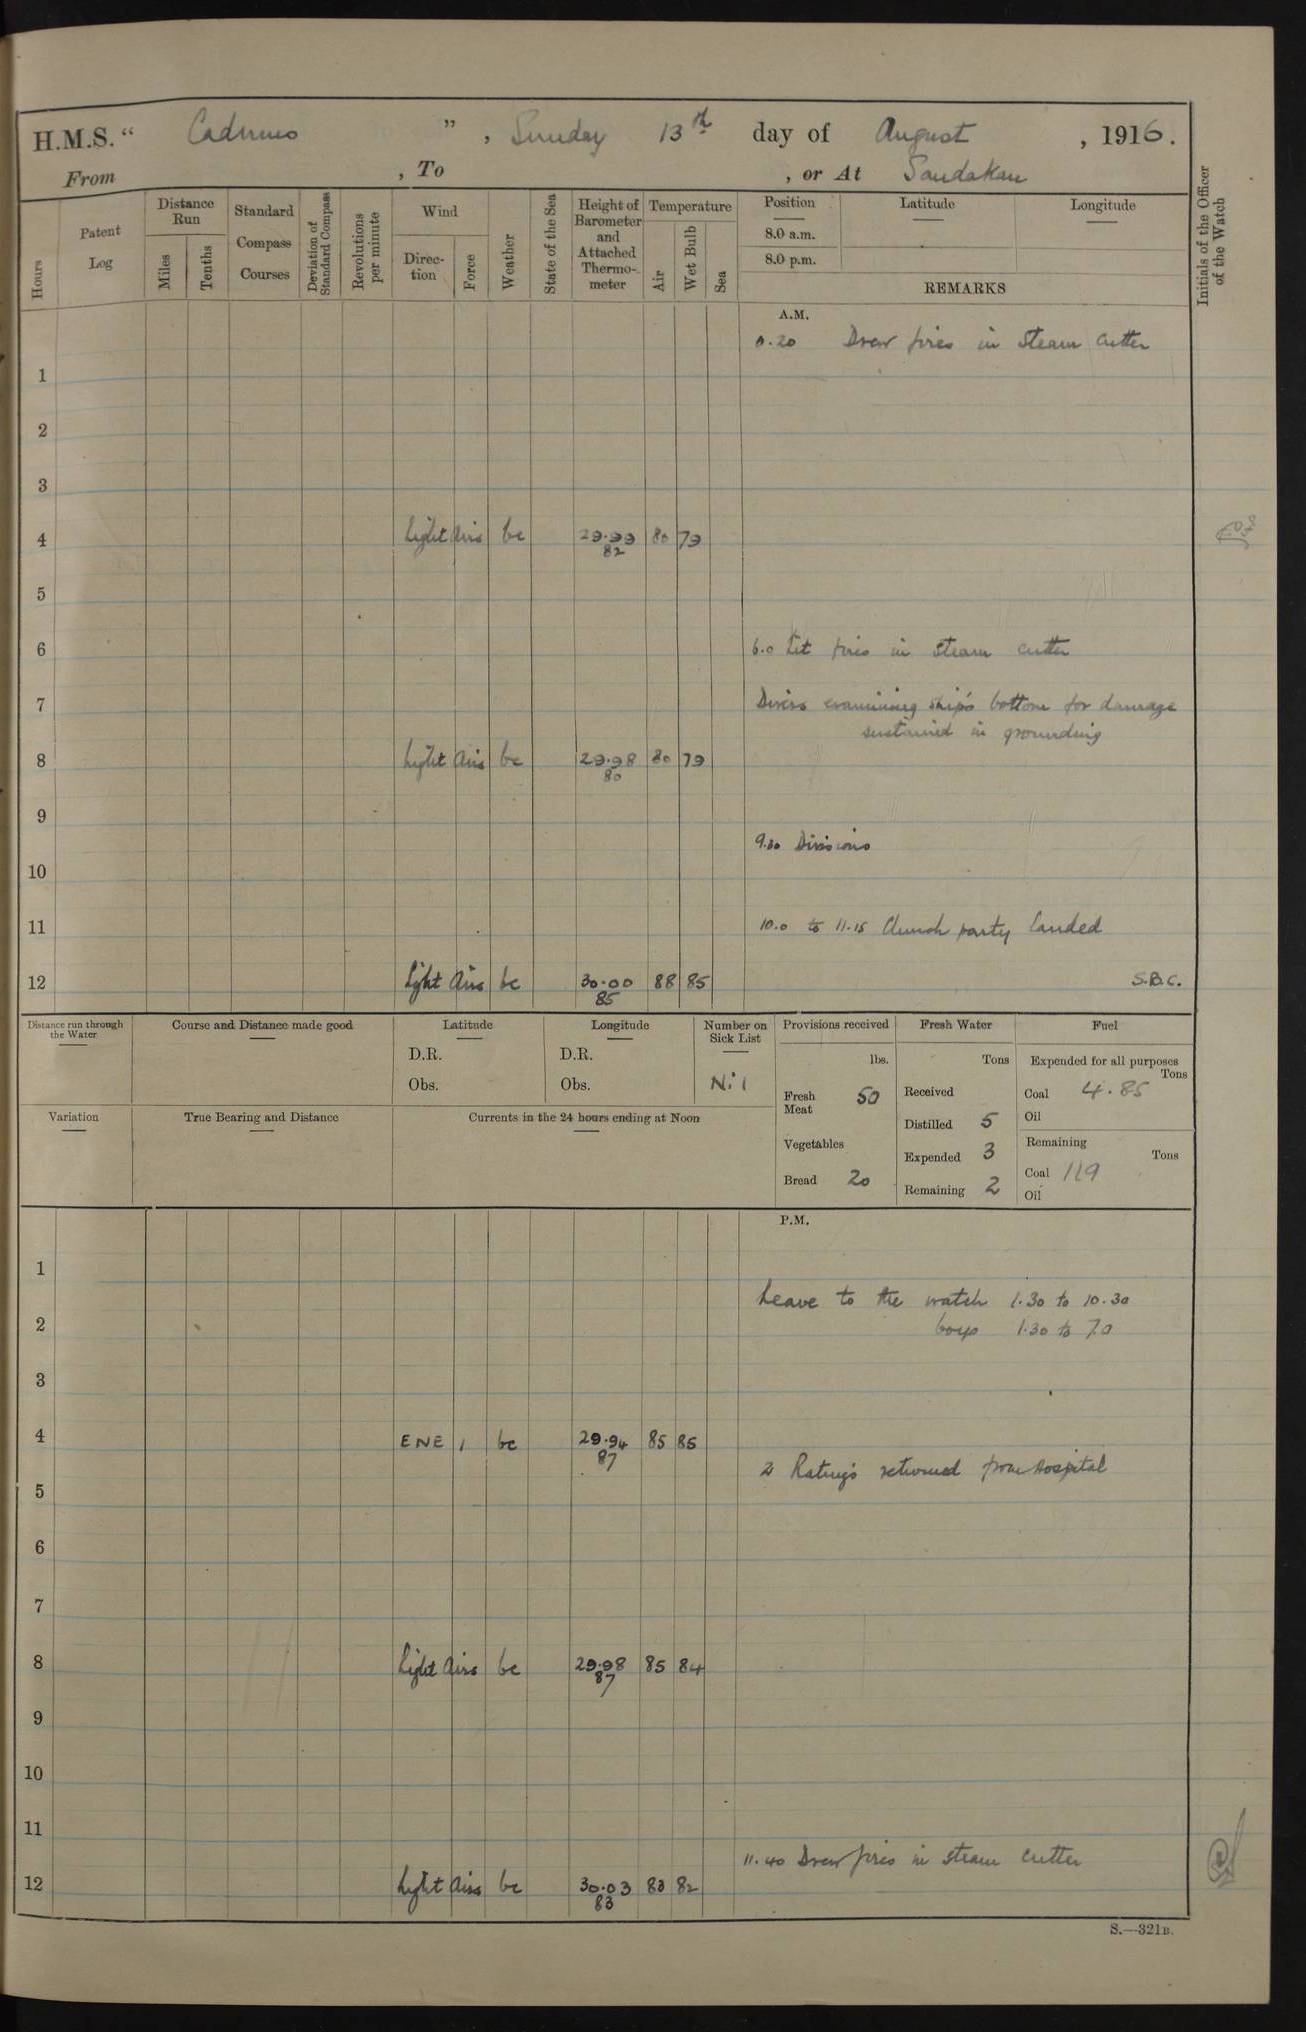 H.M.S. " Cadmus ", Sunday 13th day of August, 1916.
From , To , or At Sandakan
Hours
Patent Log
Distance Run
Miles
Tenths
Standard Compass Courses
Deviation of Standard Compass
Revolutions per minute
Wind
Direction
Force
Weather
State of the Sea
Height of Barometer and Attached Thermometer
Temperature
Air
Wet Bulb
Sea
Position
8.0 a.m.
8.0 p.m.
Latitude
Longitude
REMARKS
Initials of the Officer of the Watch
A.M.
0.20 Drew fires in steam cutter
1
2
3
4 Light airs bc 29.99 82 80 79
5
6 6.0 Lit fires in steam cutter
7 Divers examining ship's bottom for damage
sustained in grounding
8 Light airs bc 29.98 80 80 79
9
9.30 Divisions
10
11 10.0 to 11.15 Church party landed
12 Light airs bc 30.00 85 88 85 S.B.C.
Distance run through the Water
Course and Distance made good
Latitude
D.R.
Obs.
Longitude
D.R.
Obs.
Number on Sick List
Nil
Variation
True Bearing and Distance
Currents in the 24 hours ending at Noon
Provisions received
lbs.
Fresh Meat 50
Vegetables
Bread 20
Fresh Water
Tons
Received
Distilled 5
Expended 3
Remaining 2
Fuel
Expended for all purposes
Tons
Coal 4.85
Oil
Remaining
Tons
Coal 119
Oil
P.M.
1
Leave to the watch 1.30 to 10.30
2 boys 1.30 to 7.0
3
4 ENE 1 bc 29.94 87 85 85
2 Ratings returned from Hospital
5
6
7
8 Light airs bc 29.98 87 85 84
9
10
11
11.40 Drew fires in steam cutter
12 Light airs bc 30.03 83 83 82
S.—321B.